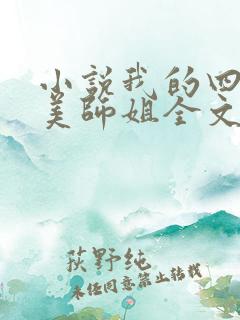 小說我的四
美師姐全文
荻野純
未經同意禁止轉載